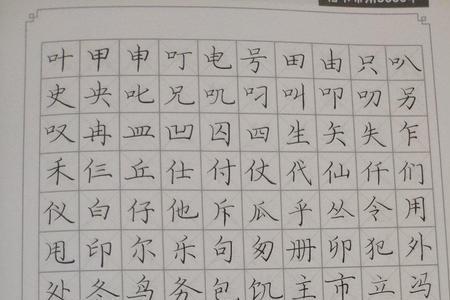 叶甲申叮电号田由只叭
史央叱兄叽叼叫叩叨另
叹冉皿凹囚四生矢失乍
禾仨丘仕付仗代仙仟们
仪白仔他斥瓜乎丛令用
甩印尔乐句匆册卯犯外
处冬鸟务包饥主市立冯